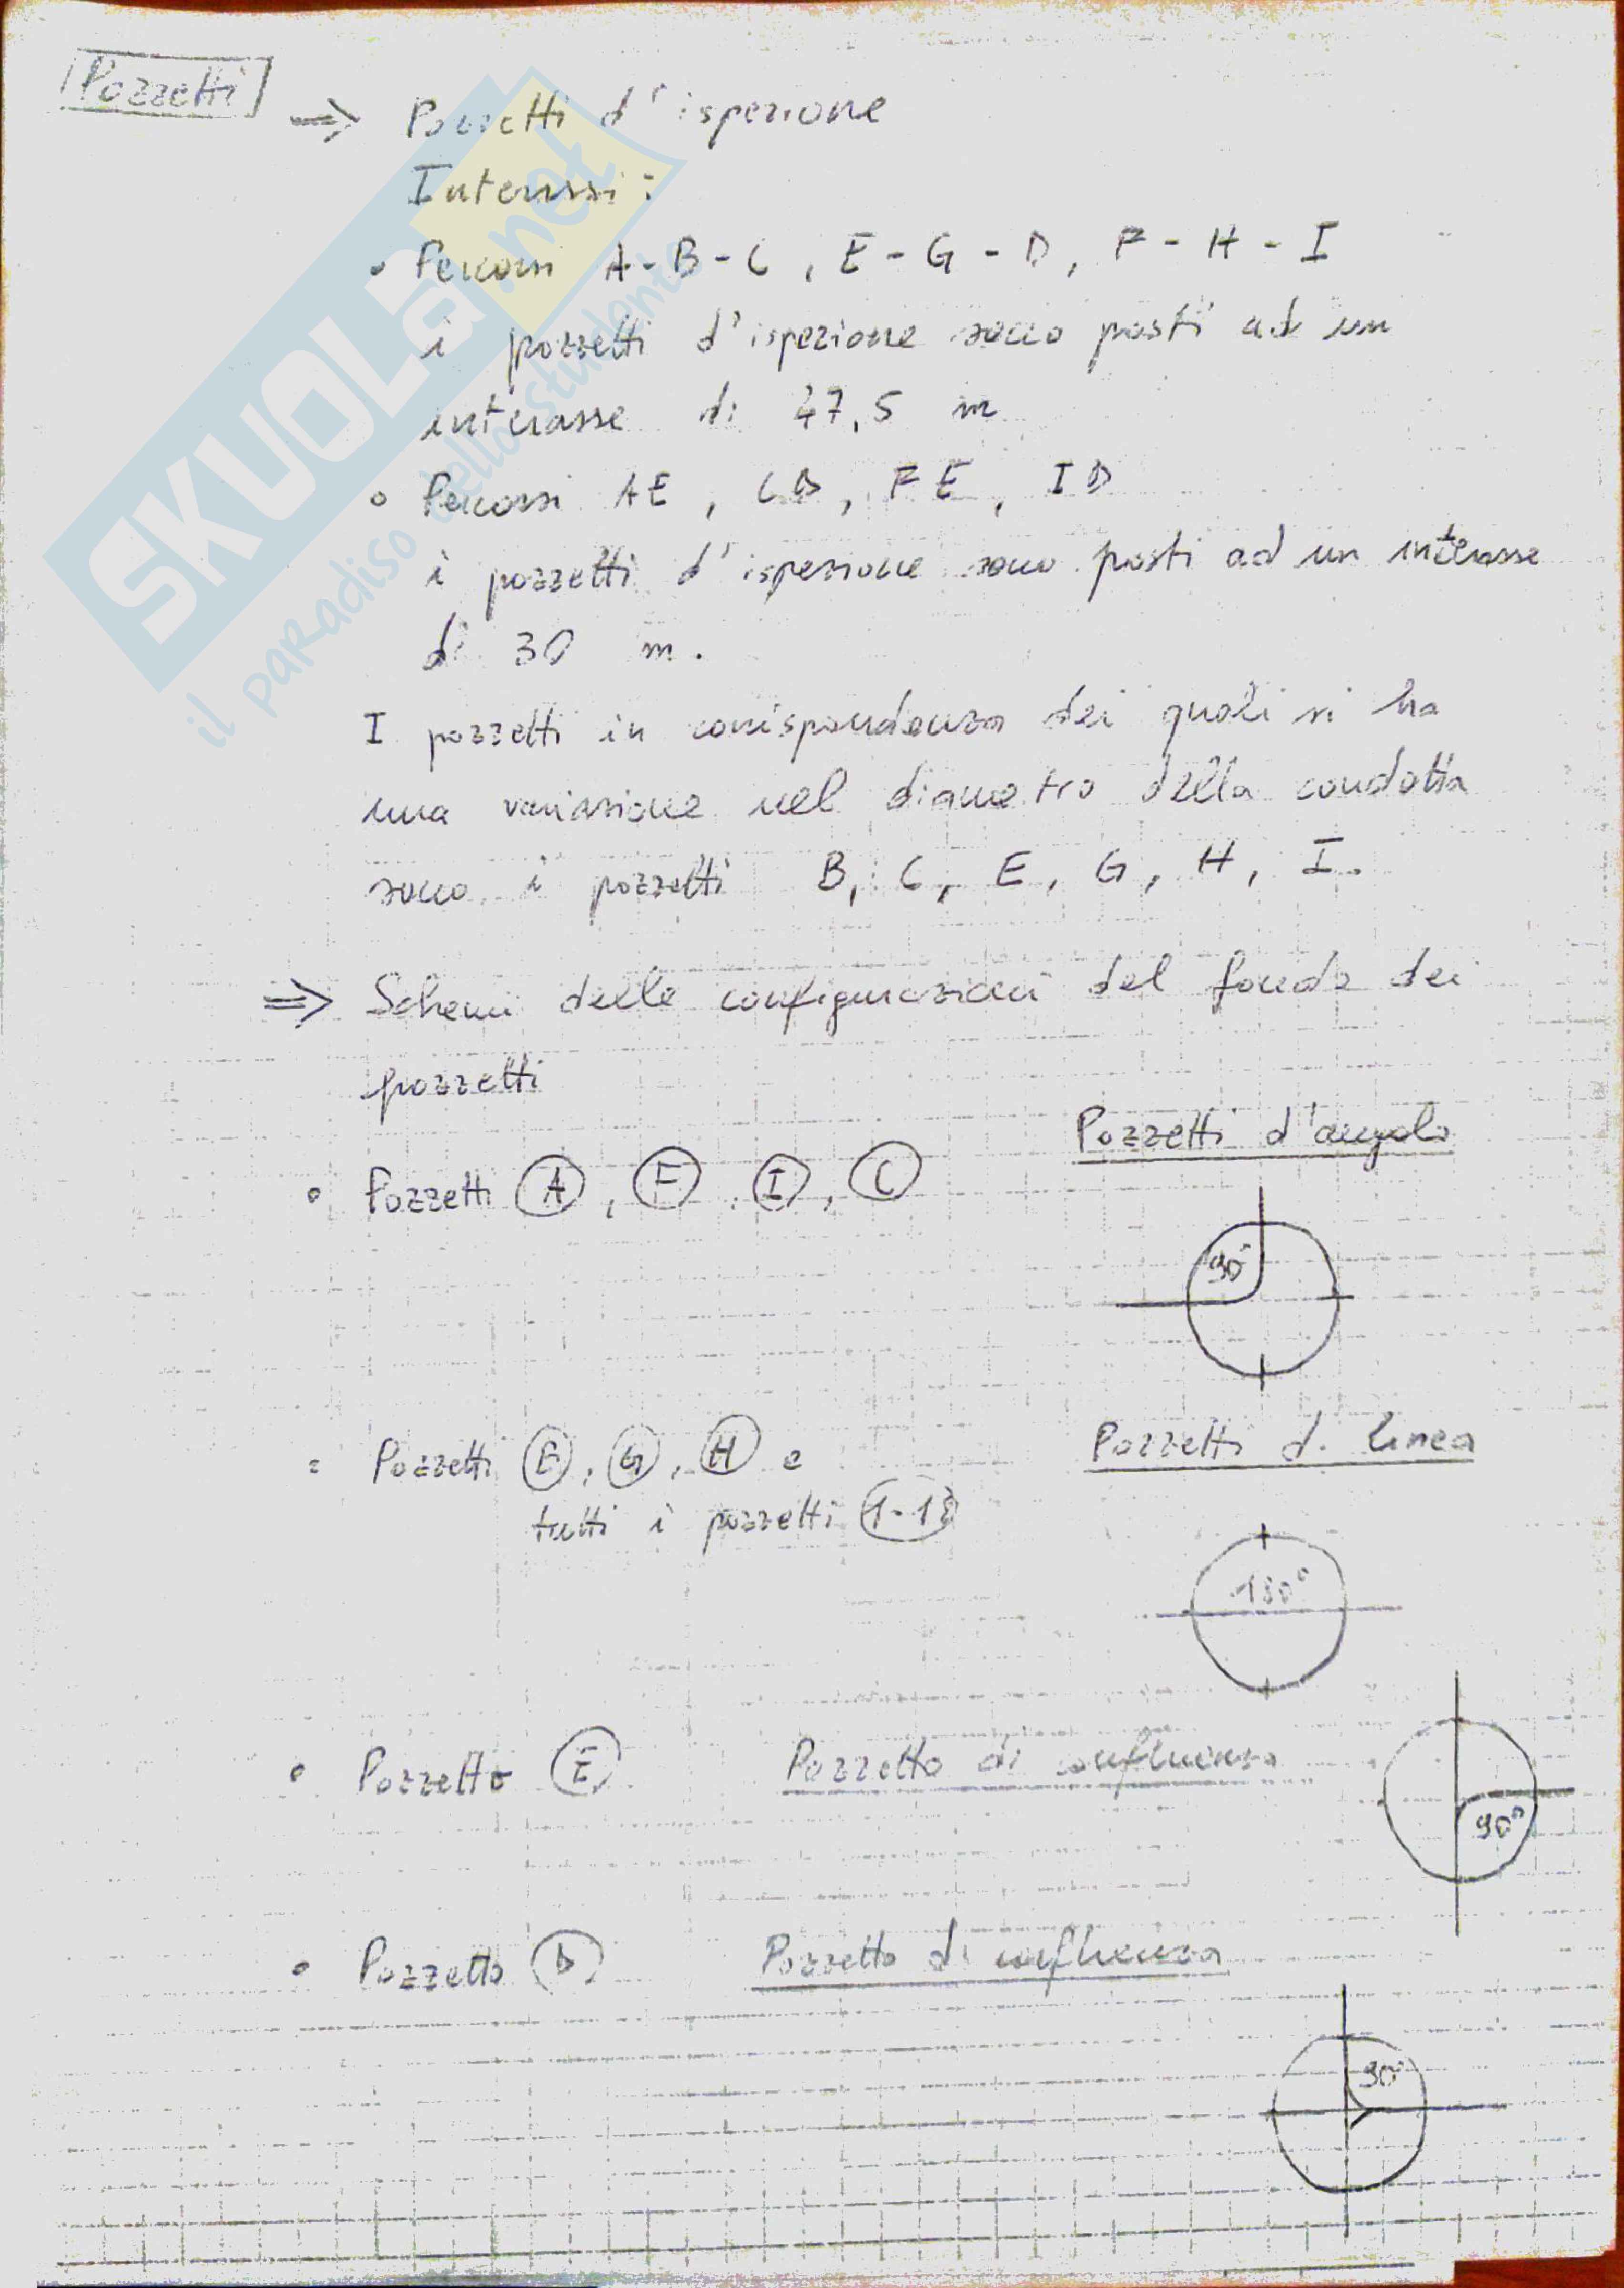 Pozzetti
⇒ Pozzetti d'ispezione
Interassi:
• Percorsi A-B-C, E-G-D, F-H-I
i pozzetti d'ispezione sono posti ad un
interasse di 47,5 m
• Percorsi AE, CD, FE, ID
i pozzetti d'ispezione sono posti ad un interasse
di 30 m.
I pozzetti in corrispondenza dei quali si ha
una variazione nel diametro della condotta
sono i pozzetti B, C, E, G, H, I.
⇒ Schemi delle configurazioni del fondo dei
pozzetti
Pozzetti d'angolo
• Pozzetti A, F, I, C
90°
Pozzetti di linea
• Pozzetti B, G, H e
tutti i pozzetti
180°
• Pozzetto E Pozzetto di confluenza
90°
• Pozzetto D Pozzetto di confluenza
90°
SKUOLA.net
il paradiso dello studente